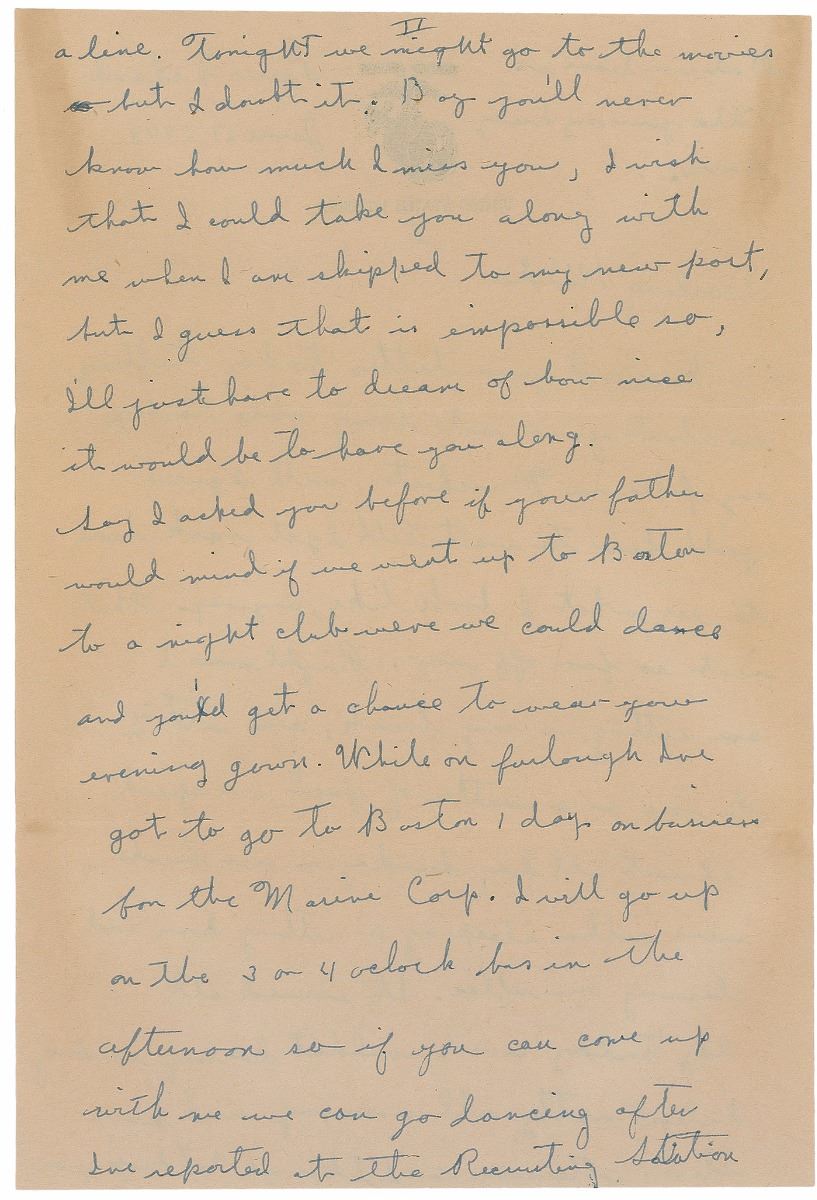 II
a line. Tonight we might go to the movies
but I doubt it. Boy you'll never
know how much I miss you, I wish
that I could take you along with
me when I am shipped to my new post,
but I guess that is impossible so,
I'll just have to dream of how nice
it would be to have you along.
Say I asked you before if your father
would mind if we went up to Boston
to a night club were we could dance
and you'd get a chance to wear your
evening gown. While on furlough I've
got to go to Boston 1 day on business
for the Marine Corp. I will go up
on the 3 or 4 oclock bus in the
afternoon so if you can come up
with me we can go dancing after
I've reported at the Recruiting Station